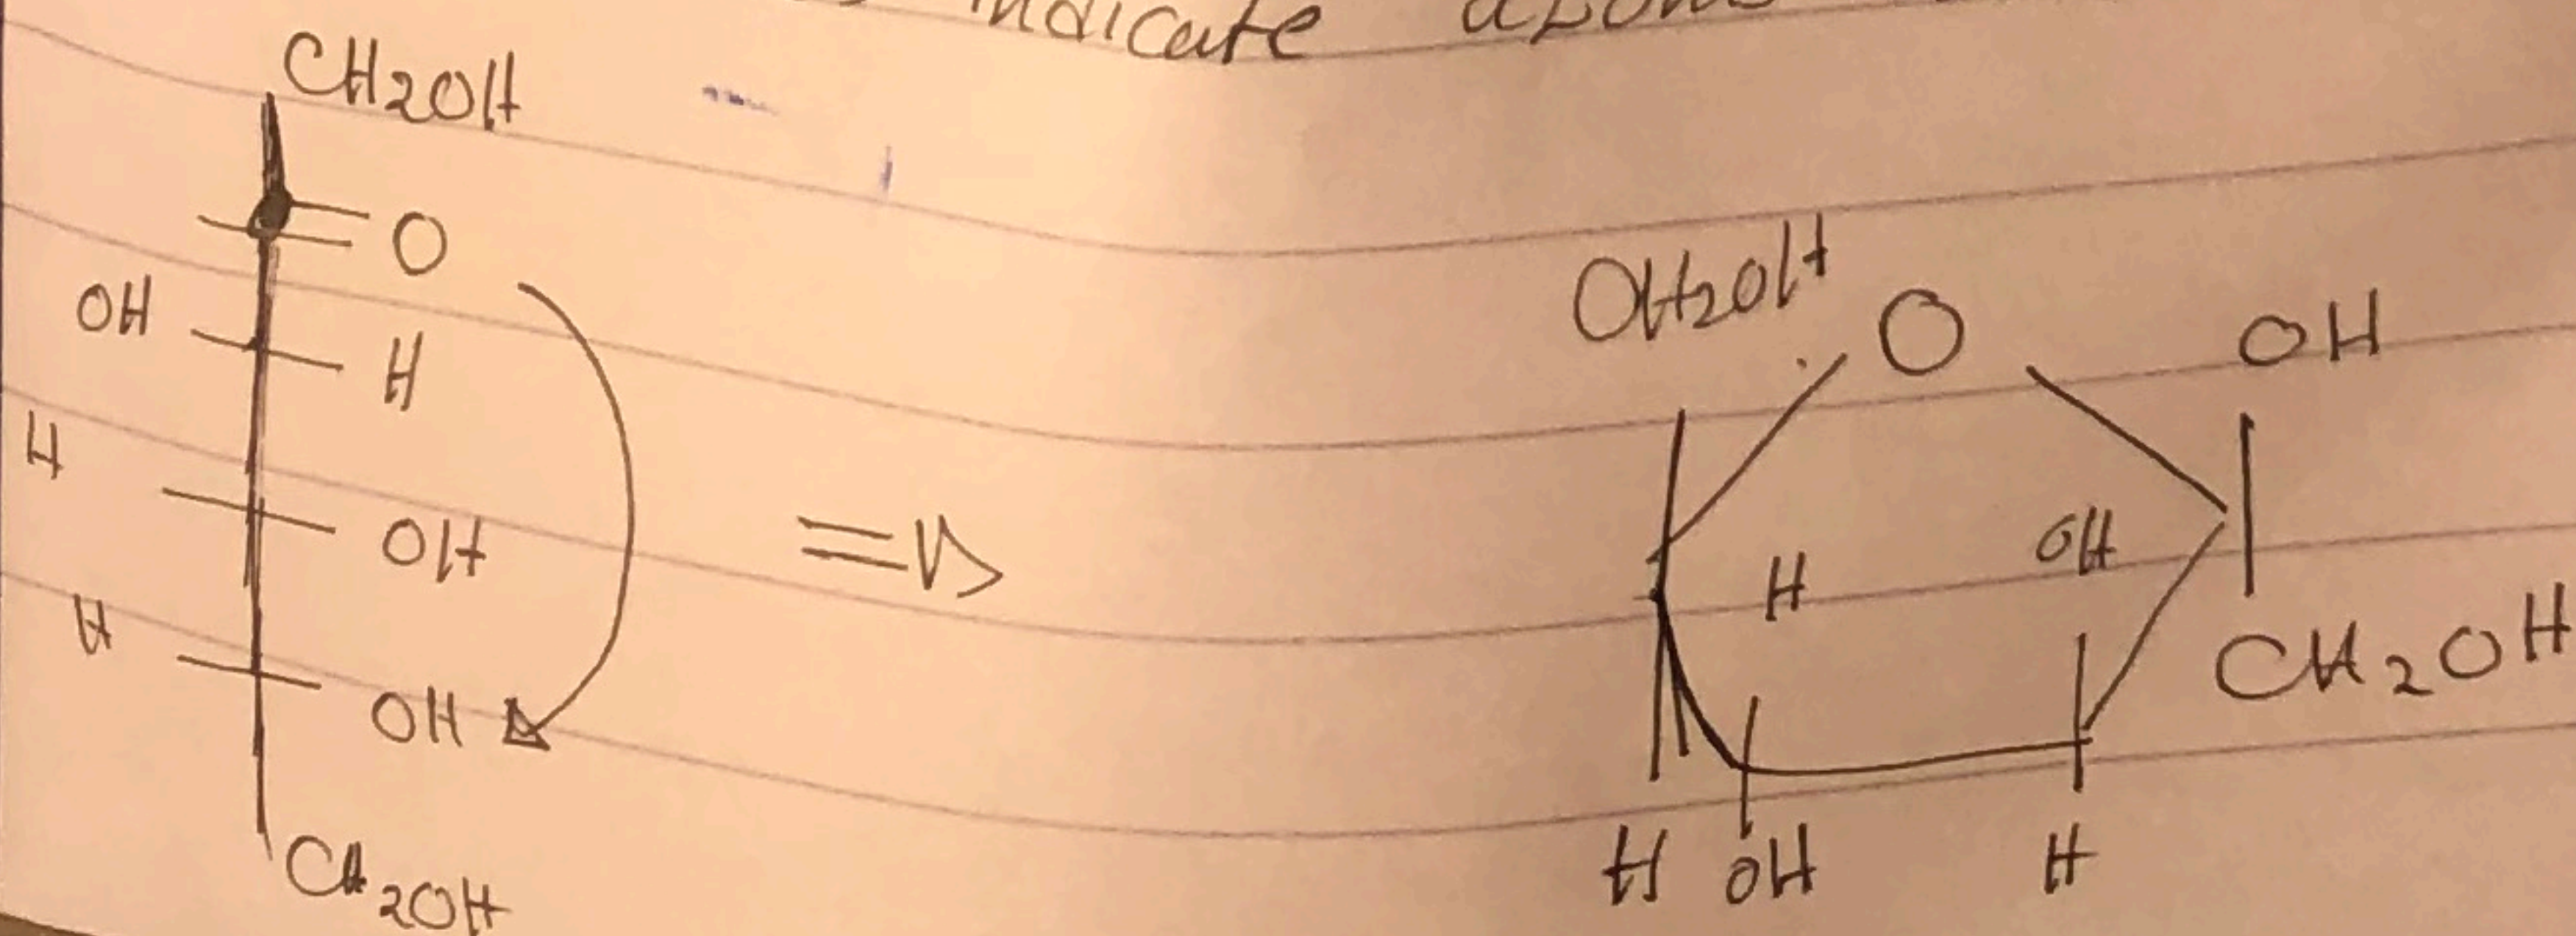 indicate
CH2OH
O
OH H
H OH
H OH
CH2OH
CH2OH O OH
H OH
CH2OH
H OH H